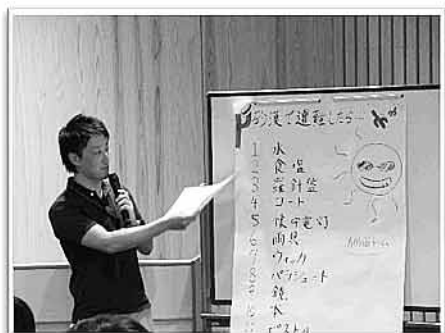 砂漠で遭難したら…
1 水
2 食塩
3 羅針盤
4 コート
5 懐中電灯
6 雨具
7 ウィッグ
8 パラシュート
9 鏡
10 本
11 ピストル